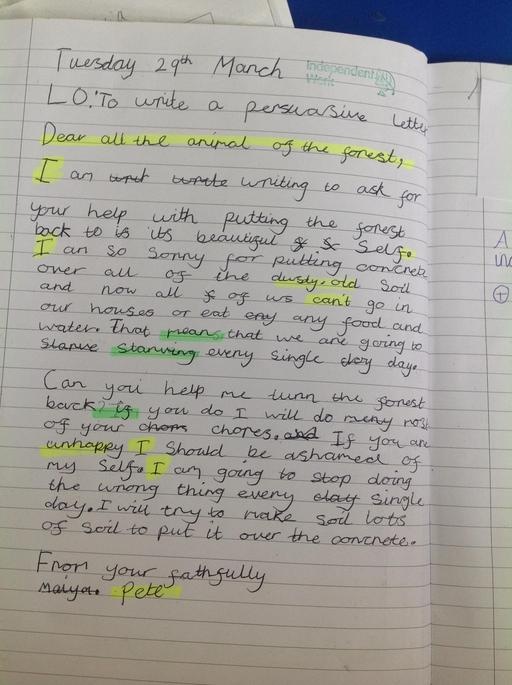 Tuesday 29th March
Independent
Work
LO: To write a persuasive Letter
Dear all the animal of the forest,
I am writ wrtite writing to ask for
your help with putting the forest
back to is its beautiful Self.
I am so sorry for putting concrete
over all of the dusty-old Soil
and now all of us can't go in
our houses or eat eny any food and
water. That means that we are going to
Starve Starving every single day day.
Can you help me turn the forest
back? If you do I will do meny most
of your chom chores. and If you are
unhappy I Should be ashamed of
my Self. I am going to stop doing
the wrong thing every day single
day. I will try to make soil lots
of Soil to put it over the concrete.
From your faithfully
Maiya. Pete
A